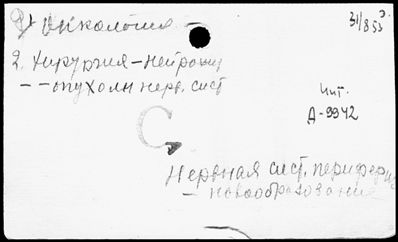 Онкология —
31/853 э.
2. Хирургия — Нейрохир
— — опухоли нерв. сист
чит.
Д-9942
С
Нервная сист. перифери
— новообразования